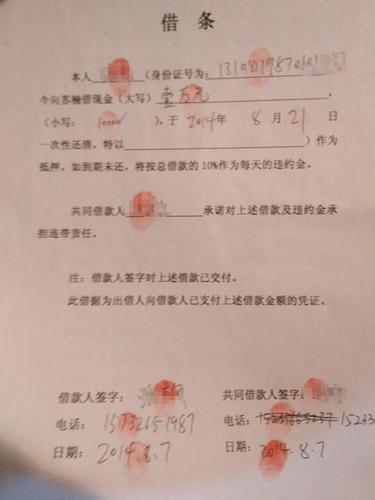 借条
本人 （身份证号为：13108119870601
今向苏楠借现金（大写）壹万元，
（小写：10000），于 2014年 8 月 21 日
一次性还清，特以 ）作为
抵押，如到期未还，将按总借款的 10%作为每天的违约金。
共同借款人 承诺对上述借款及违约金承
担连带责任。
注：借款人签字时上述借款已交付。
此借据为出借人向借款人已支付上述借款金额的凭证。
借款人签字： 共同借款人签字：
电话： 15732651987 电话： 15233
日期： 2014.8.7 日期： 2014.8.7